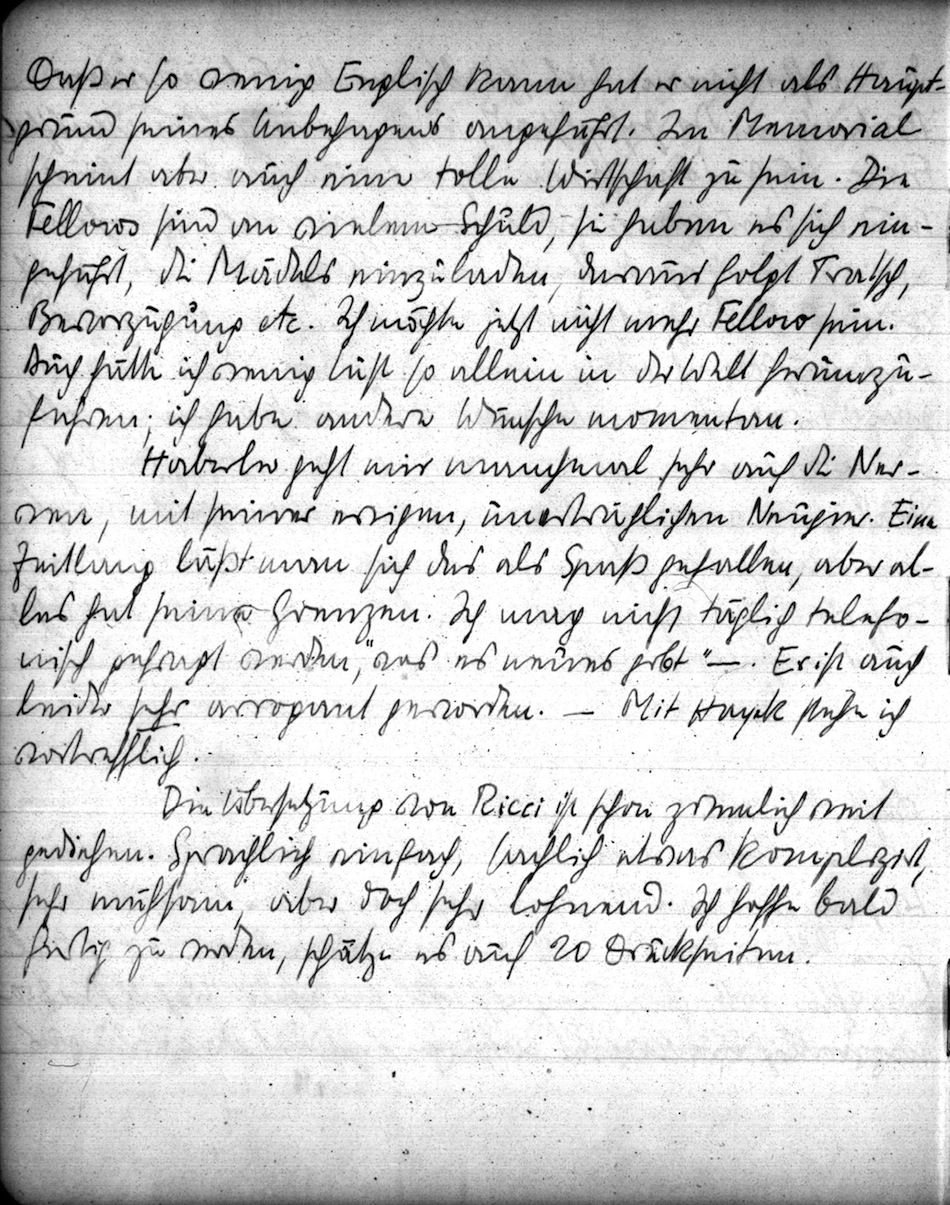 Daß er so wenig Englisch kann hat er nicht als Haupt-
grund seines Unbehagens angeführt. Im Memorial
scheint aber auch eine tolle Wirtschaft zu sein. Die
Fellows sind an vielem Schuld, sie haben es sich ein-
geführt, die Mädels einzuladen, daraus folgt Tratsch,
Bevorzugung etc. Ich möchte jetzt nicht mehr Fellow sein.
Auch hätte ich wenig Lust so allein in der Welt herumzu-
fahren; ich habe andere Wünsche momentan.
Haberler geht mir manchmal sehr auf die Ner-
ven, mit seiner ewigen, unerträglichen Neugier. Eine
Zeitlang läßt man sich das als Spaß gefallen, aber al-
les hat seine Grenzen. Ich mag nicht täglich telefo-
nisch gefragt werden, "was es neues gibt" —. Er ist auch
leider sehr arrogant geworden. — Mit Hayek stehe ich
vortrefflich.
Die Übersetzung von Ricci ist schon ziemlich weit
gediehen. Sprachlich einfach, sachlich etwas kompliziert,
sehr mühsam, aber doch sehr lohnend. Ich hoffe bald
fertig zu werden, schätze es auf 20 Druckseiten.